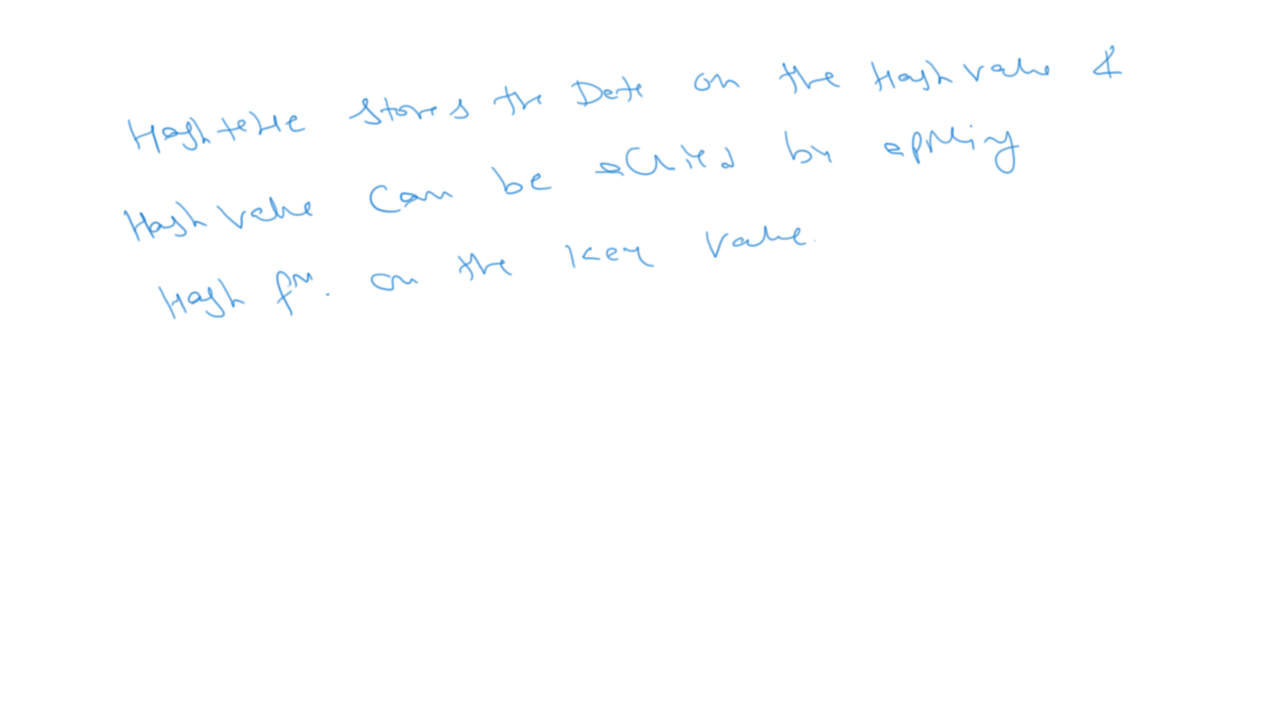 Hashtable stores the Data on the Hash value &
Hash value can be by applying
Hash fn. on the key value.